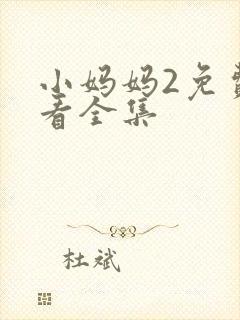 小妈妈2免费
看全集
杜斌